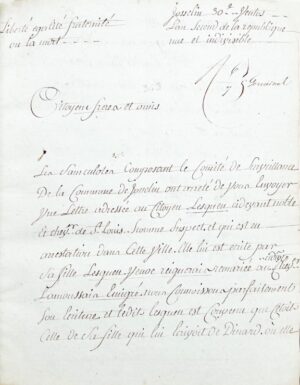 Liberté égalité fraternité
ou la mort
Josselin 30e Ventôs
L'an second de la république
une et indivisible
6
7 Germinal
Citoyens freres et amis
Les Sansculotes Composant le Comité de Surveillance
De la Commune de Josselin ont arreté de vous Envoyer
Une Lettre adressée au Citoyen Lesquen cy devant noble
et chevr. de St. Louis, homme Suspect, et qui est en
arrestation dans Cette Ville. Elle lui est écrite par
sa fille Lesquen Veuve remariée au
Lamoussaie Emigré, nous Connoissons parfaitement
son Ecriture et ledit Lesquen est Convenu que C'étoit
Celle de sa fille qui lui Ecrivoit de Dinard, ou elle